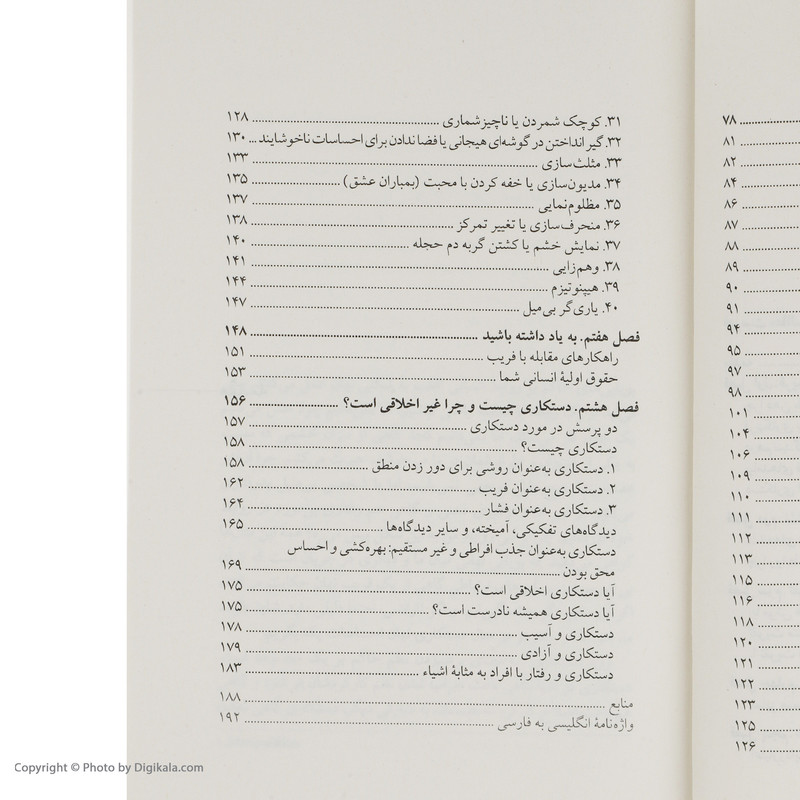 ۷۸
۸۱
۸۲
۸۴
۸۶
۸۷
۸۸
۸۹
۹۰
۹۱
۹۴
۹۵
۹۷
۹۸
۱۰۱
۱۰۴
۱۰۶
۱۰۹
۱۱۰
۱۱۱
۱۱۲
۱۱۳
۱۱۵
۱۱۶
۱۱۸
۱۲۰
۱۲۱
۱۲۲
۱۲۳
۱۲۵
۱۲۶
۳۱. کوچک شمردن یا ناچیزشماری ۱۲۸
۳۲. گیر انداختن در گوشه‌ای هیجانی یا فضا ندادن برای احساسات ناخوشایند ۱۳۰
۳۳. مثلث‌سازی ۱۳۳
۳۴. مدیون‌سازی یا خفه کردن با محبت (بمباران عشق) ۱۳۵
۳۵. مظلوم‌نمایی ۱۳۷
۳۶. منحرف‌سازی یا تغییر تمرکز ۱۳۸
۳۷. نمایش خشم یا کشتن گربه دم حجله ۱۴۰
۳۸. وهم‌زایی ۱۴۱
۳۹. هیپنوتیزم ۱۴۴
۴۰. یاری‌گر بی‌میل ۱۴۷
فصل هفتم. به یاد داشته باشید ۱۴۸
راهکارهای مقابله با فریب ۱۵۱
حقوق اولیهٔ انسانی شما ۱۵۳
فصل هشتم. دستکاری چیست و چرا غیر اخلاقی است؟ ۱۵۶
دو پرسش در مورد دستکاری ۱۵۷
دستکاری چیست؟ ۱۵۸
۱. دستکاری به‌عنوان روشی برای دور زدن منطق ۱۵۸
۲. دستکاری به‌عنوان فریب ۱۶۲
۳. دستکاری به‌عنوان فشار ۱۶۴
دیدگاه‌های تفکیکی، آمیخته، و سایر دیدگاه‌ها ۱۶۵
دستکاری به‌عنوان جذب افراطی و غیر مستقیم: بهره‌کشی و احساس
محق بودن ۱۶۹
آیا دستکاری اخلاقی است؟ ۱۷۵
آیا دستکاری همیشه نادرست است؟ ۱۷۵
دستکاری و آسیب ۱۷۸
دستکاری و آزادی ۱۷۹
دستکاری و رفتار با افراد به مثابهٔ اشیاء ۱۸۳
منابع ۱۸۸
واژه‌نامهٔ انگلیسی به فارسی ۱۹۲
Copyright © Photo by Digikala.com